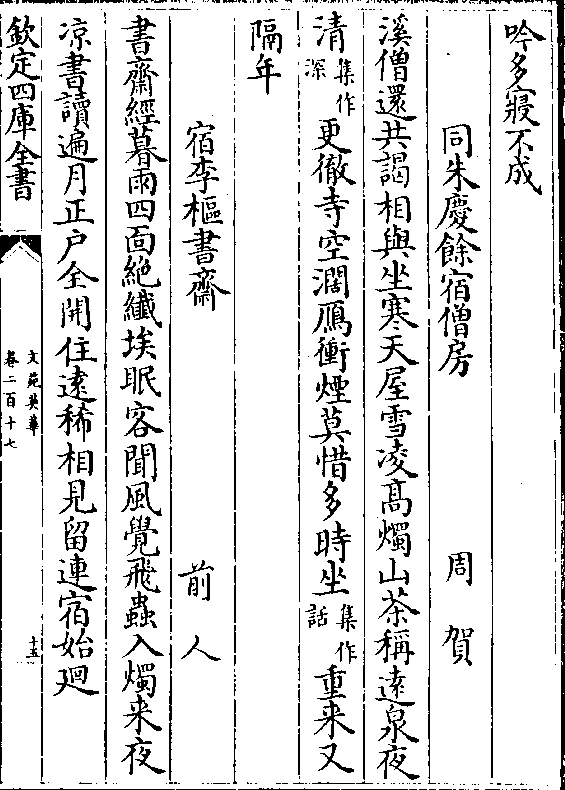 吟多寢不成
同朱慶餘宿僧房
周賀
溪僧還共謁相與坐寒天屋雪凌髙燭山茶稱逺泉夜
清集作深更徹寺空濶鴈衝煙莫惜多時坐集作話重来又
隔年
宿李樞書齋
前人
書齋經暮雨四面絶纖埃眠客聞風覺飛蟲入燭来夜
凉書讀遍月正户全開住逺稀相見留連宿始廻
欽定四庫全書
文苑英華
卷二百十七
十五